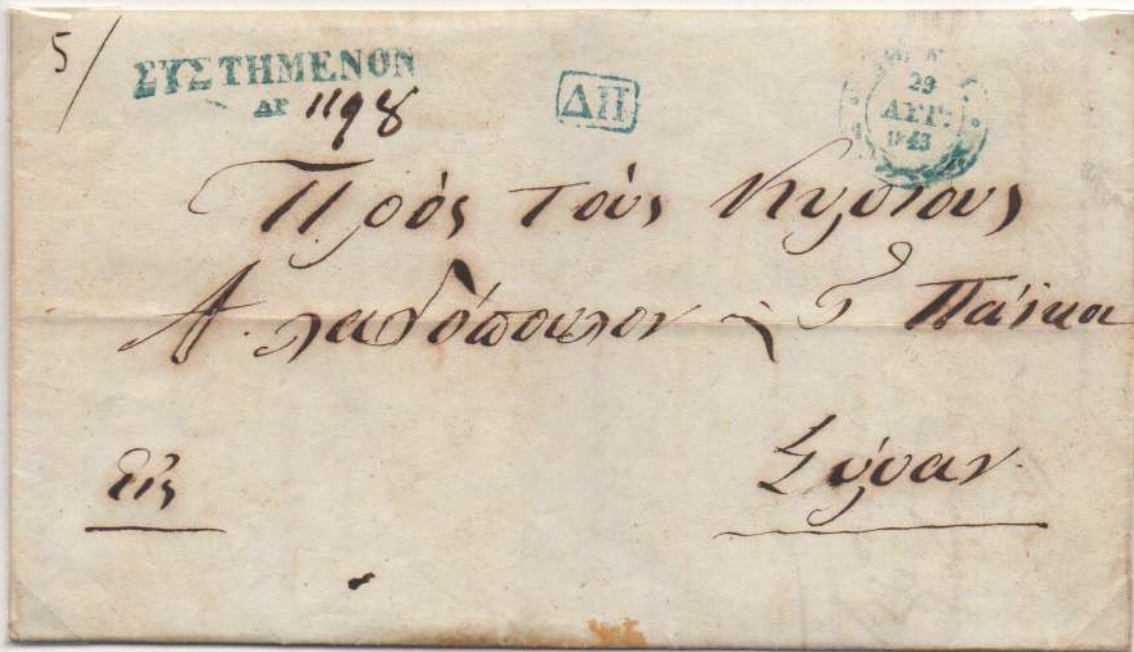 5/
ΣΥΣΤΗΜΕΝΟΝ
ΑΡ 1198
ΔΠ
29
ΑΥΓ:
1843
Πρὸς τοὺς Κυρίους
Πάϊκα
Εἰς
Σύραν